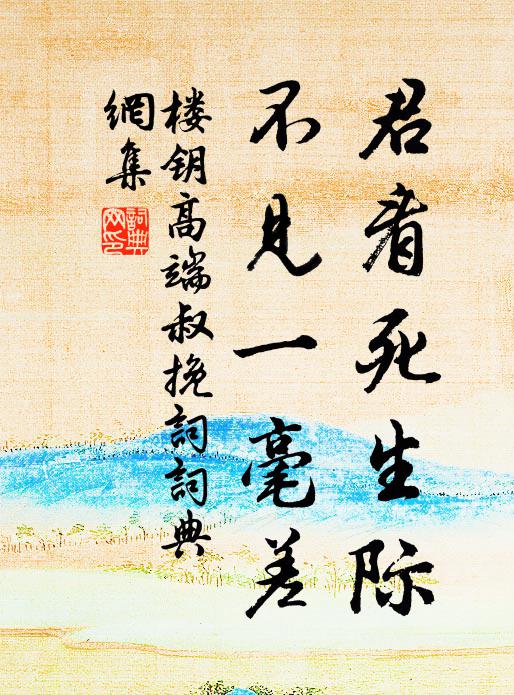 君看死生际
不见一毫差
楼钥高端叔挽詞詞典
網集
詞典
网印